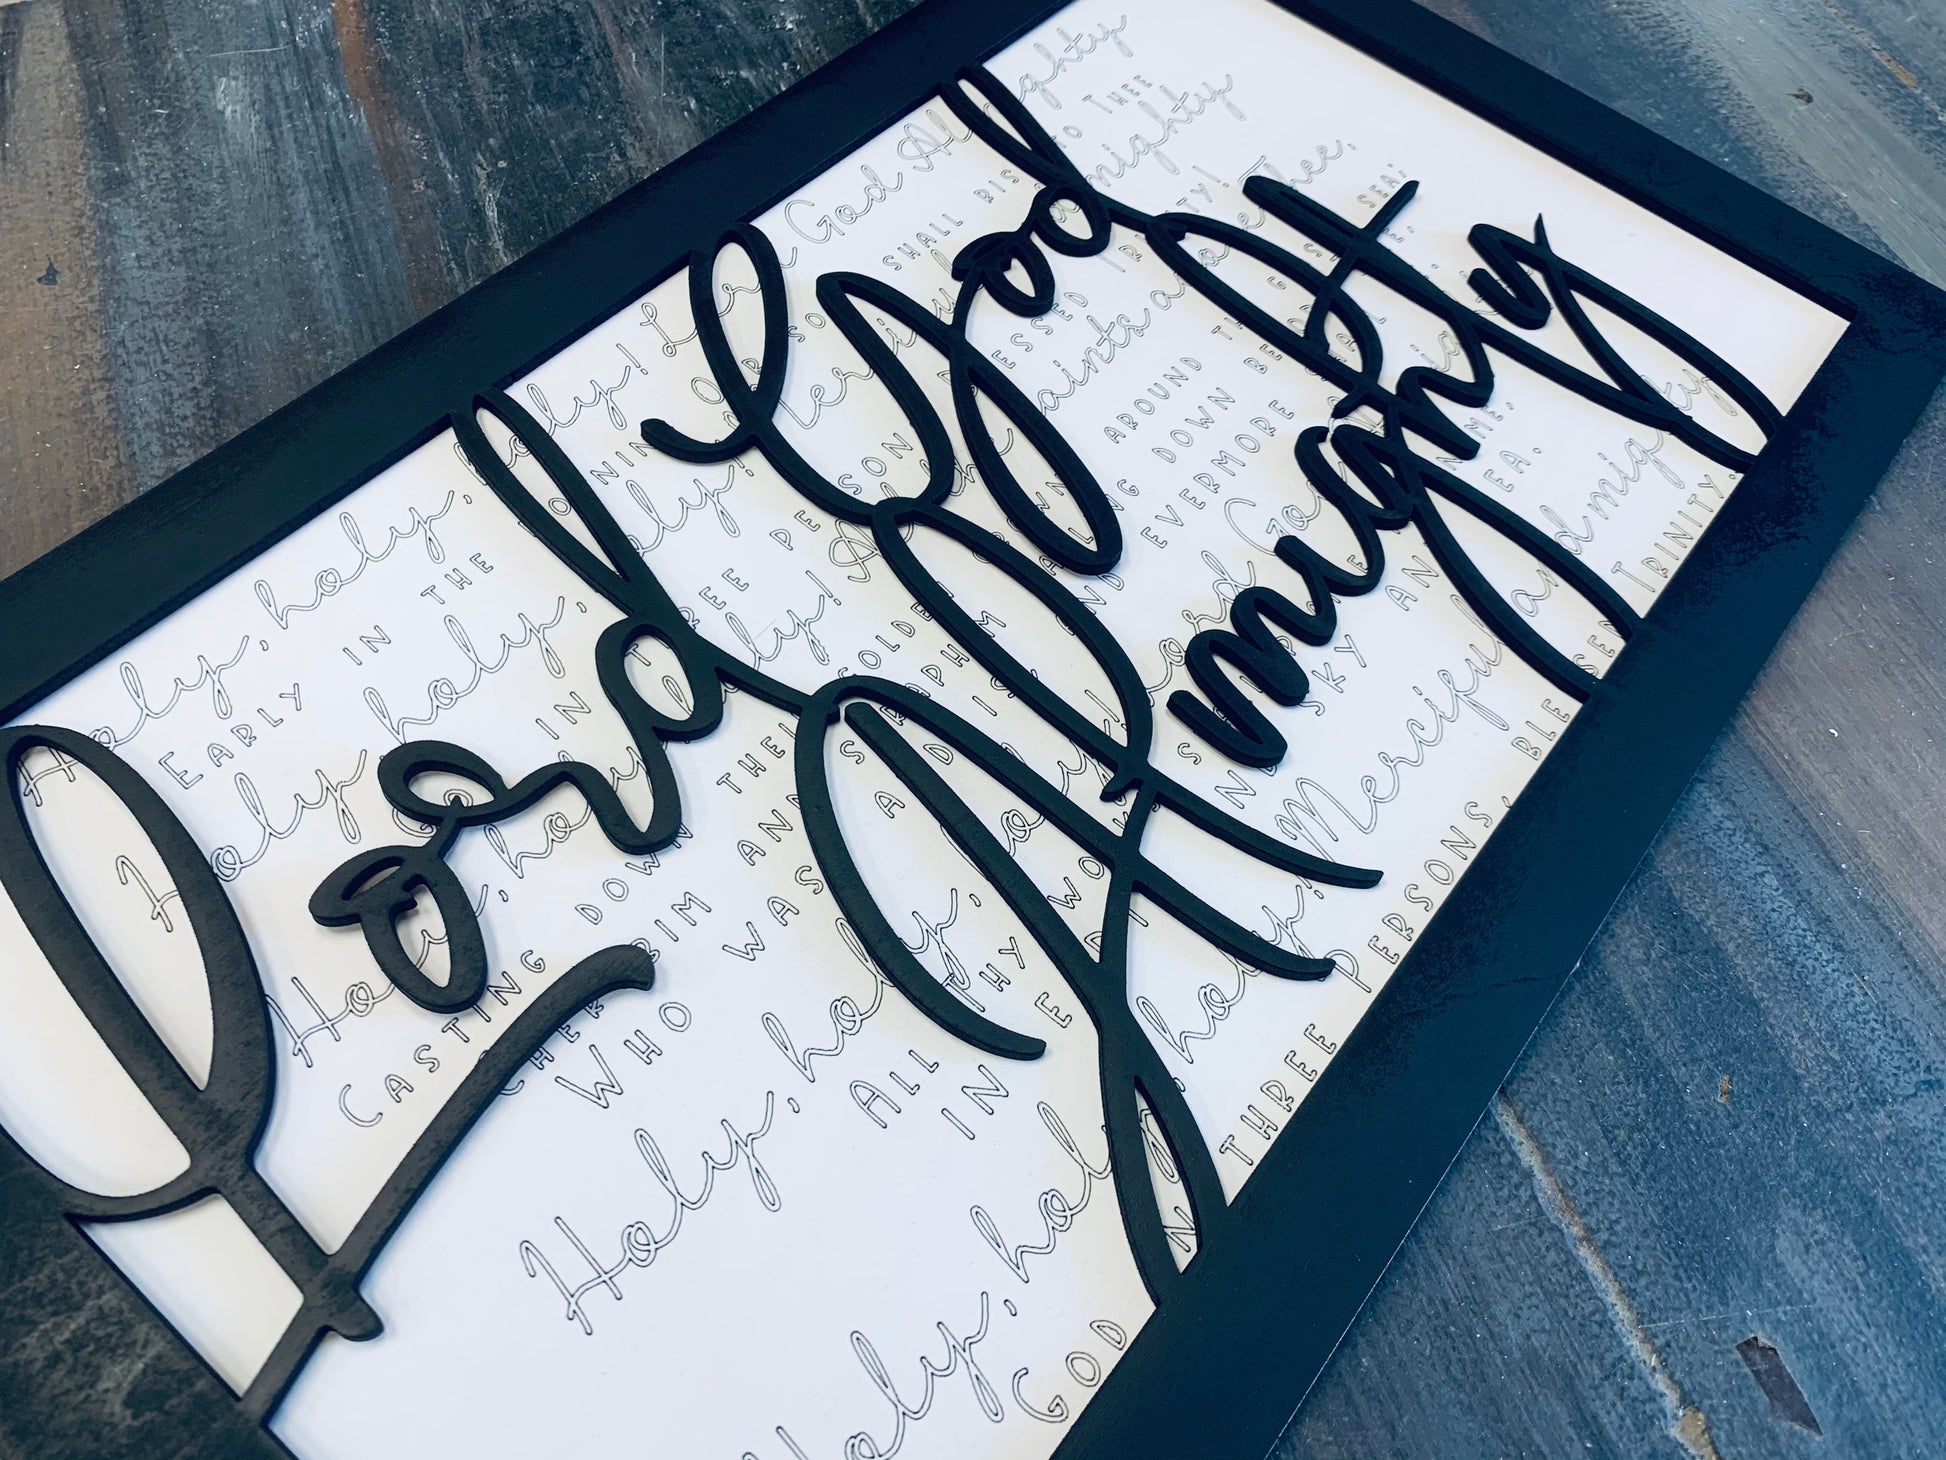 Lord God Almighty
Holy, holy, holy! Lord God Almighty
EARLY IN THE MORNING OUR SO SHALL RISE TO THEE
Holy, holy, holy! Merciful mighty
GOD IN THREE PERSONS BLESSED TRINITY!
Holy, holy, holy! All the saints adore Thee,
CASTING DOWN THEIR GOLDEN CROWNS AROUND THE GLASSY SEA;
CHERUBIM AND SERAPHIM FALLING DOWN BEFORE
WHO WAS AND IS AND EVERMORE SHALL BE.
Holy, holy, holy! Lord God Almighty
ALL THY WORKS SHALL PRAISE NAME,
IN E AND SKY AND SEA.
Holy, holy, holy! Merciful and mighty
GOD IN THREE PERSONS, BLESSED TRINITY.